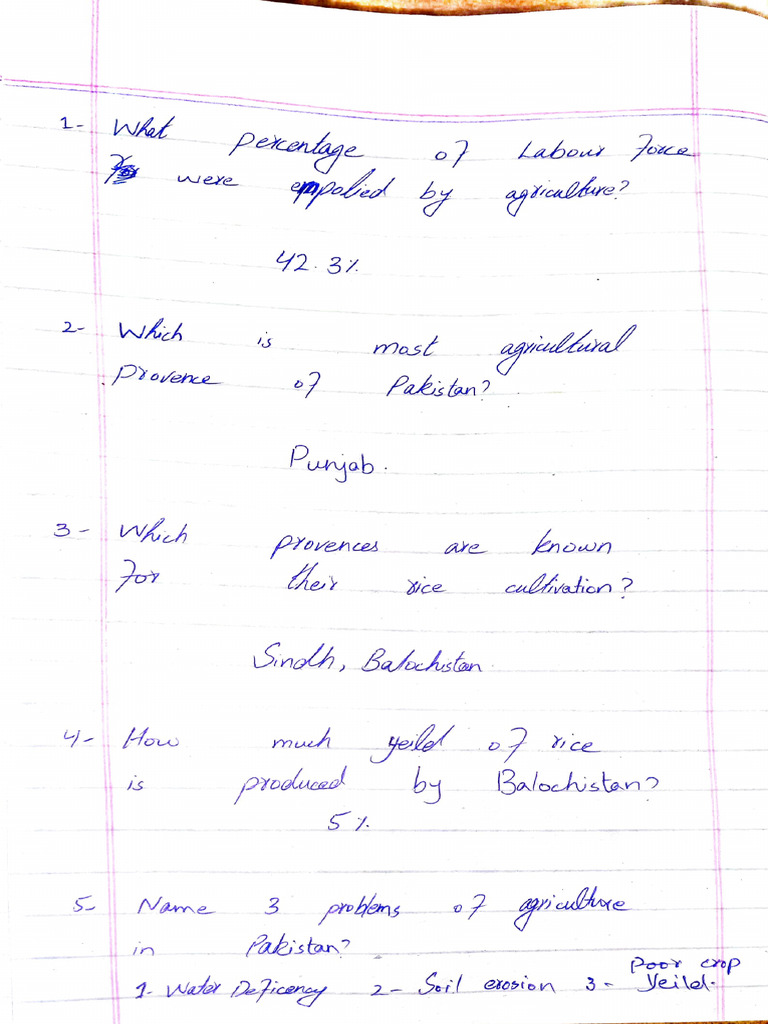 1- What percentage of Labour Force
were empolied by agriculture?
42.3%
2- Which is most agricultural
Provence of Pakistan?
Punjab.
3- Which provences are known
For their rice cultivation?
Sindh, Balochistan.
4- How much yeild of rice
is produced by Balochistan?
5%
5- Name 3 problems of agriculture
in Pakistan?
1- Water Deficency 2- Soil erosion 3- Poor crop
Yeild.